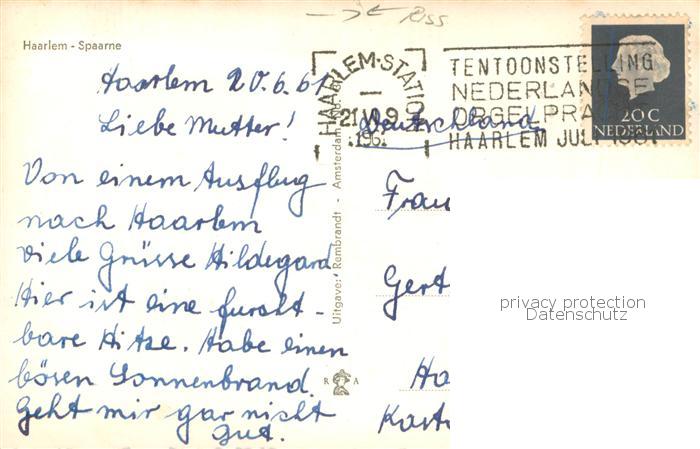 Riss
Haarlem - Spaarne
Haarlem 20.6.61
Liebe Mutter!
Von einem Ausflug
nach Haarlem
viele Grüsse Hildegard
Hier ist eine furcht-
bare Hitze. Habe einen
bösen Sonnenbrand.
Geht mir gar nicht
gut.
Uitgave: Rembrandt - Amsterdam
R A
HAARLEM-STATIO
21.VI.9
.196
TENTOONSTELLING
NEDERLANDSE
ORGELPRA
HAARLEM JULI 1961
20 C
NEDERLAND
Deutschland
Frau
Gert
Ha
Kast
privacy protection
Datenschutz